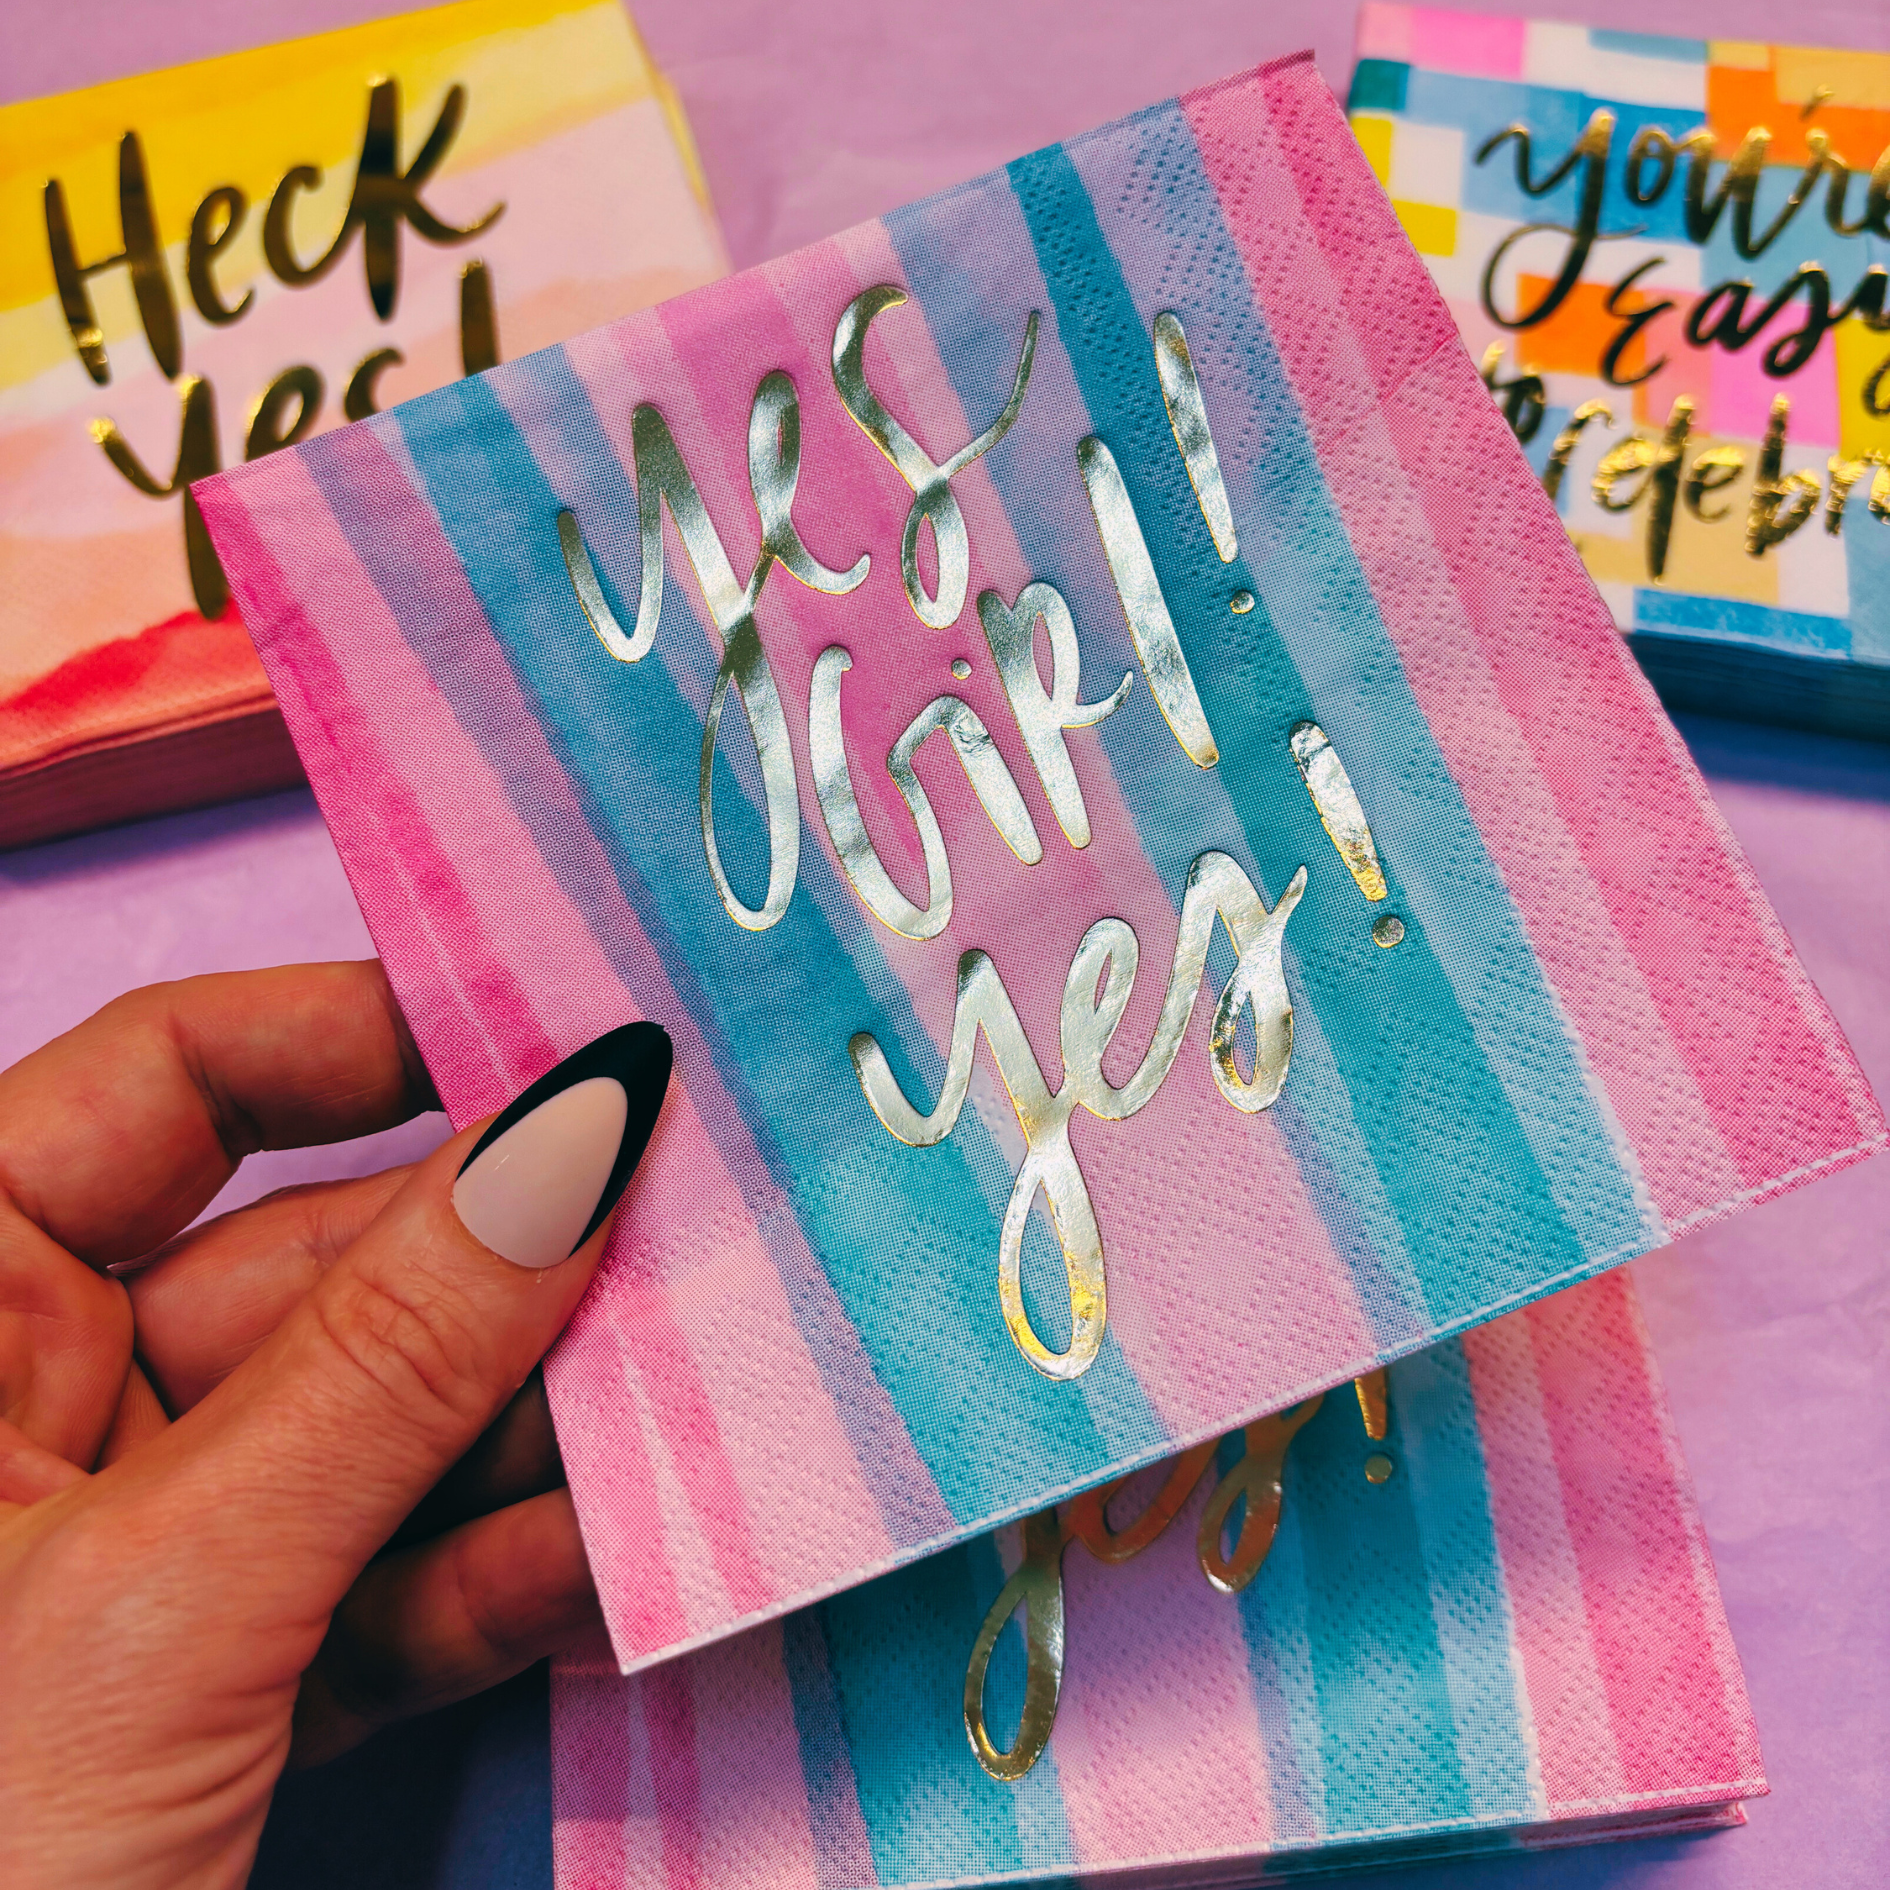 Heck
yes!
yes
Girl!
yes!
yes!
you're
Easy
to
celebr